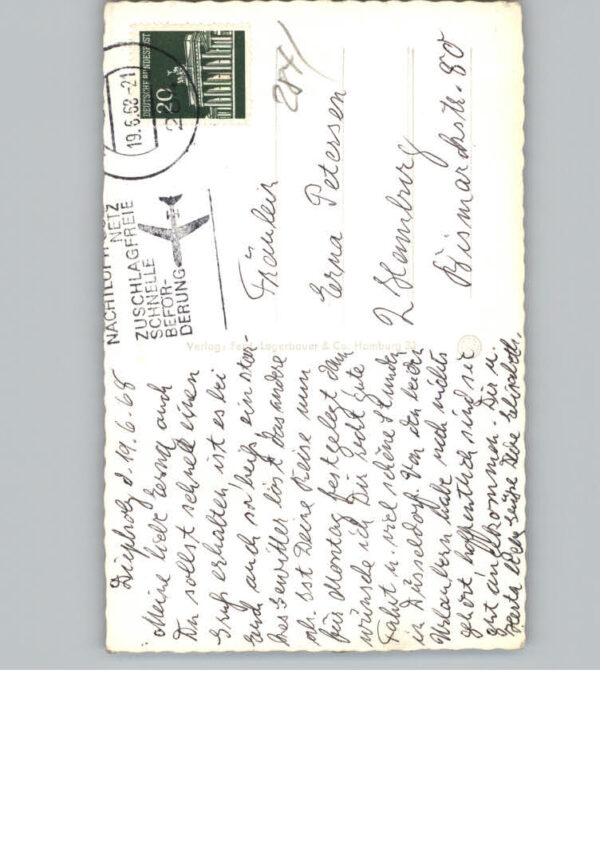 Diepholz d. 19.6.68
Meine liebe Erna, auch
Du sollst schnell einen
Gruß erhalten ist es bei
Euch auch so heiß, ein
das Gewitter löst das andere
ab. Ist Deine Reise nun
für Montag festgelegt dann
wünsche ich Dir recht gute
Fahrt u. viel schöne Stunden
in Düsseldorf. Von den beiden
Urlaubern habe noch nichts
gehört hoffentlich sind sie
gut angekommen. Dir u.
Herta Deine Elisabeth.
DEUTSCHE BUNDESPOST
20
19.6.68-21
NETZ
ZUSCHLAGFREIE
SCHNELLE
BEFÖR-
DERUNG
287/
Fräulein
Erna Petersen
2 Hamburg
Bismarckstr. 80
Verlag: Lagerbauer & Co. Hamburg